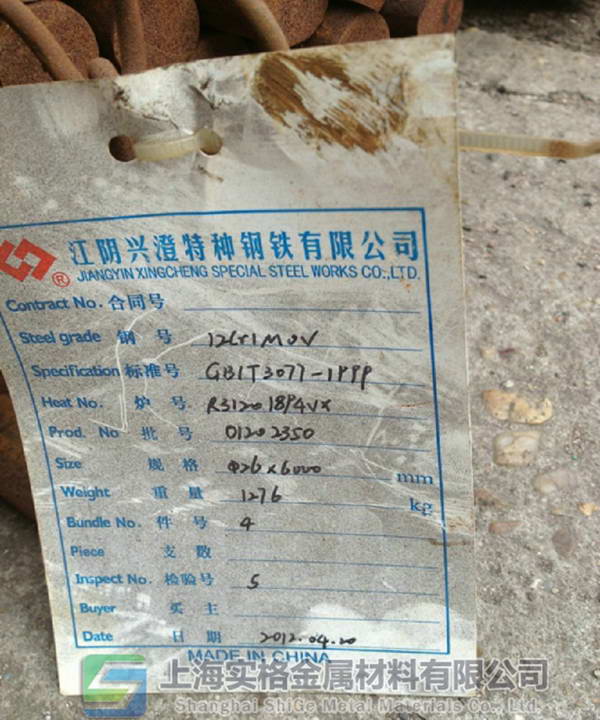 江阴兴澄特种钢铁有限公司
® JIANGYIN XINGCHENG SPECIAL STEEL WORKS CO.,LTD.
Contract No. 合同号
Steel grade 钢 号 12Cr1MOV
Specification 标准号 GB/T3077-1999
Heat No. 炉 号 R31201894VX
Prod. No 批 号 01202350
Size 规 格 Φ26×6000 mm
Weight 重 量 1276 kg
Bundle No. 件 号 4
Piece 支 数
Inspect No. 检验号 5
Buyer 买 主
Date 日 期 2012.04.20
MADE IN CHINA
上海实格金属材料有限公司
Shanghai ShiGe Metal Materials Co., Ltd.